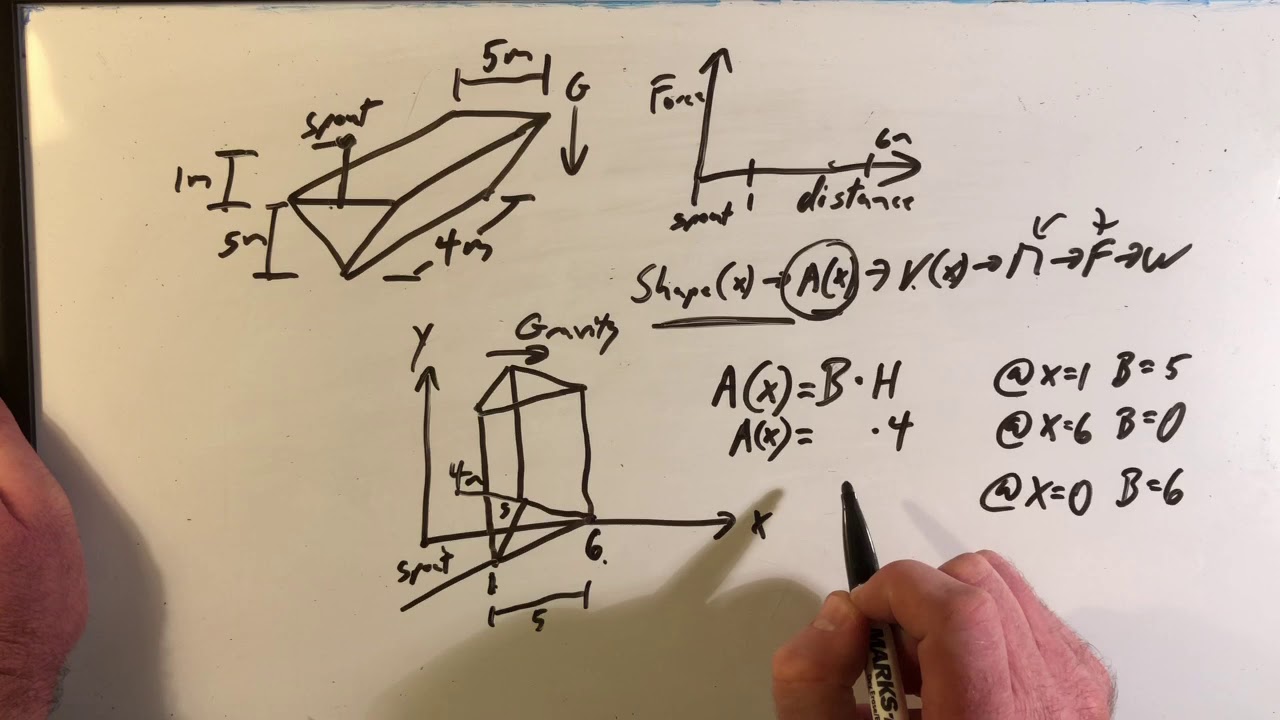 5m
G
spout
1m
5m
4m
Force
6m
spout
1
distance
Shape(x) → A(x) → V(x) → M → F → W
Y
Gravity
4m
5
x
spout
1
6
5
A(x) = B · H
A(x) =    · 4
@ x=1 B=5
@ x=6 B=0
@ x=0 B=6
MARKS